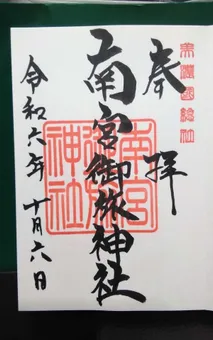 奉拝
美濃国総社
南宮御旅神社
南宮御旅神社
令和六年十月六日